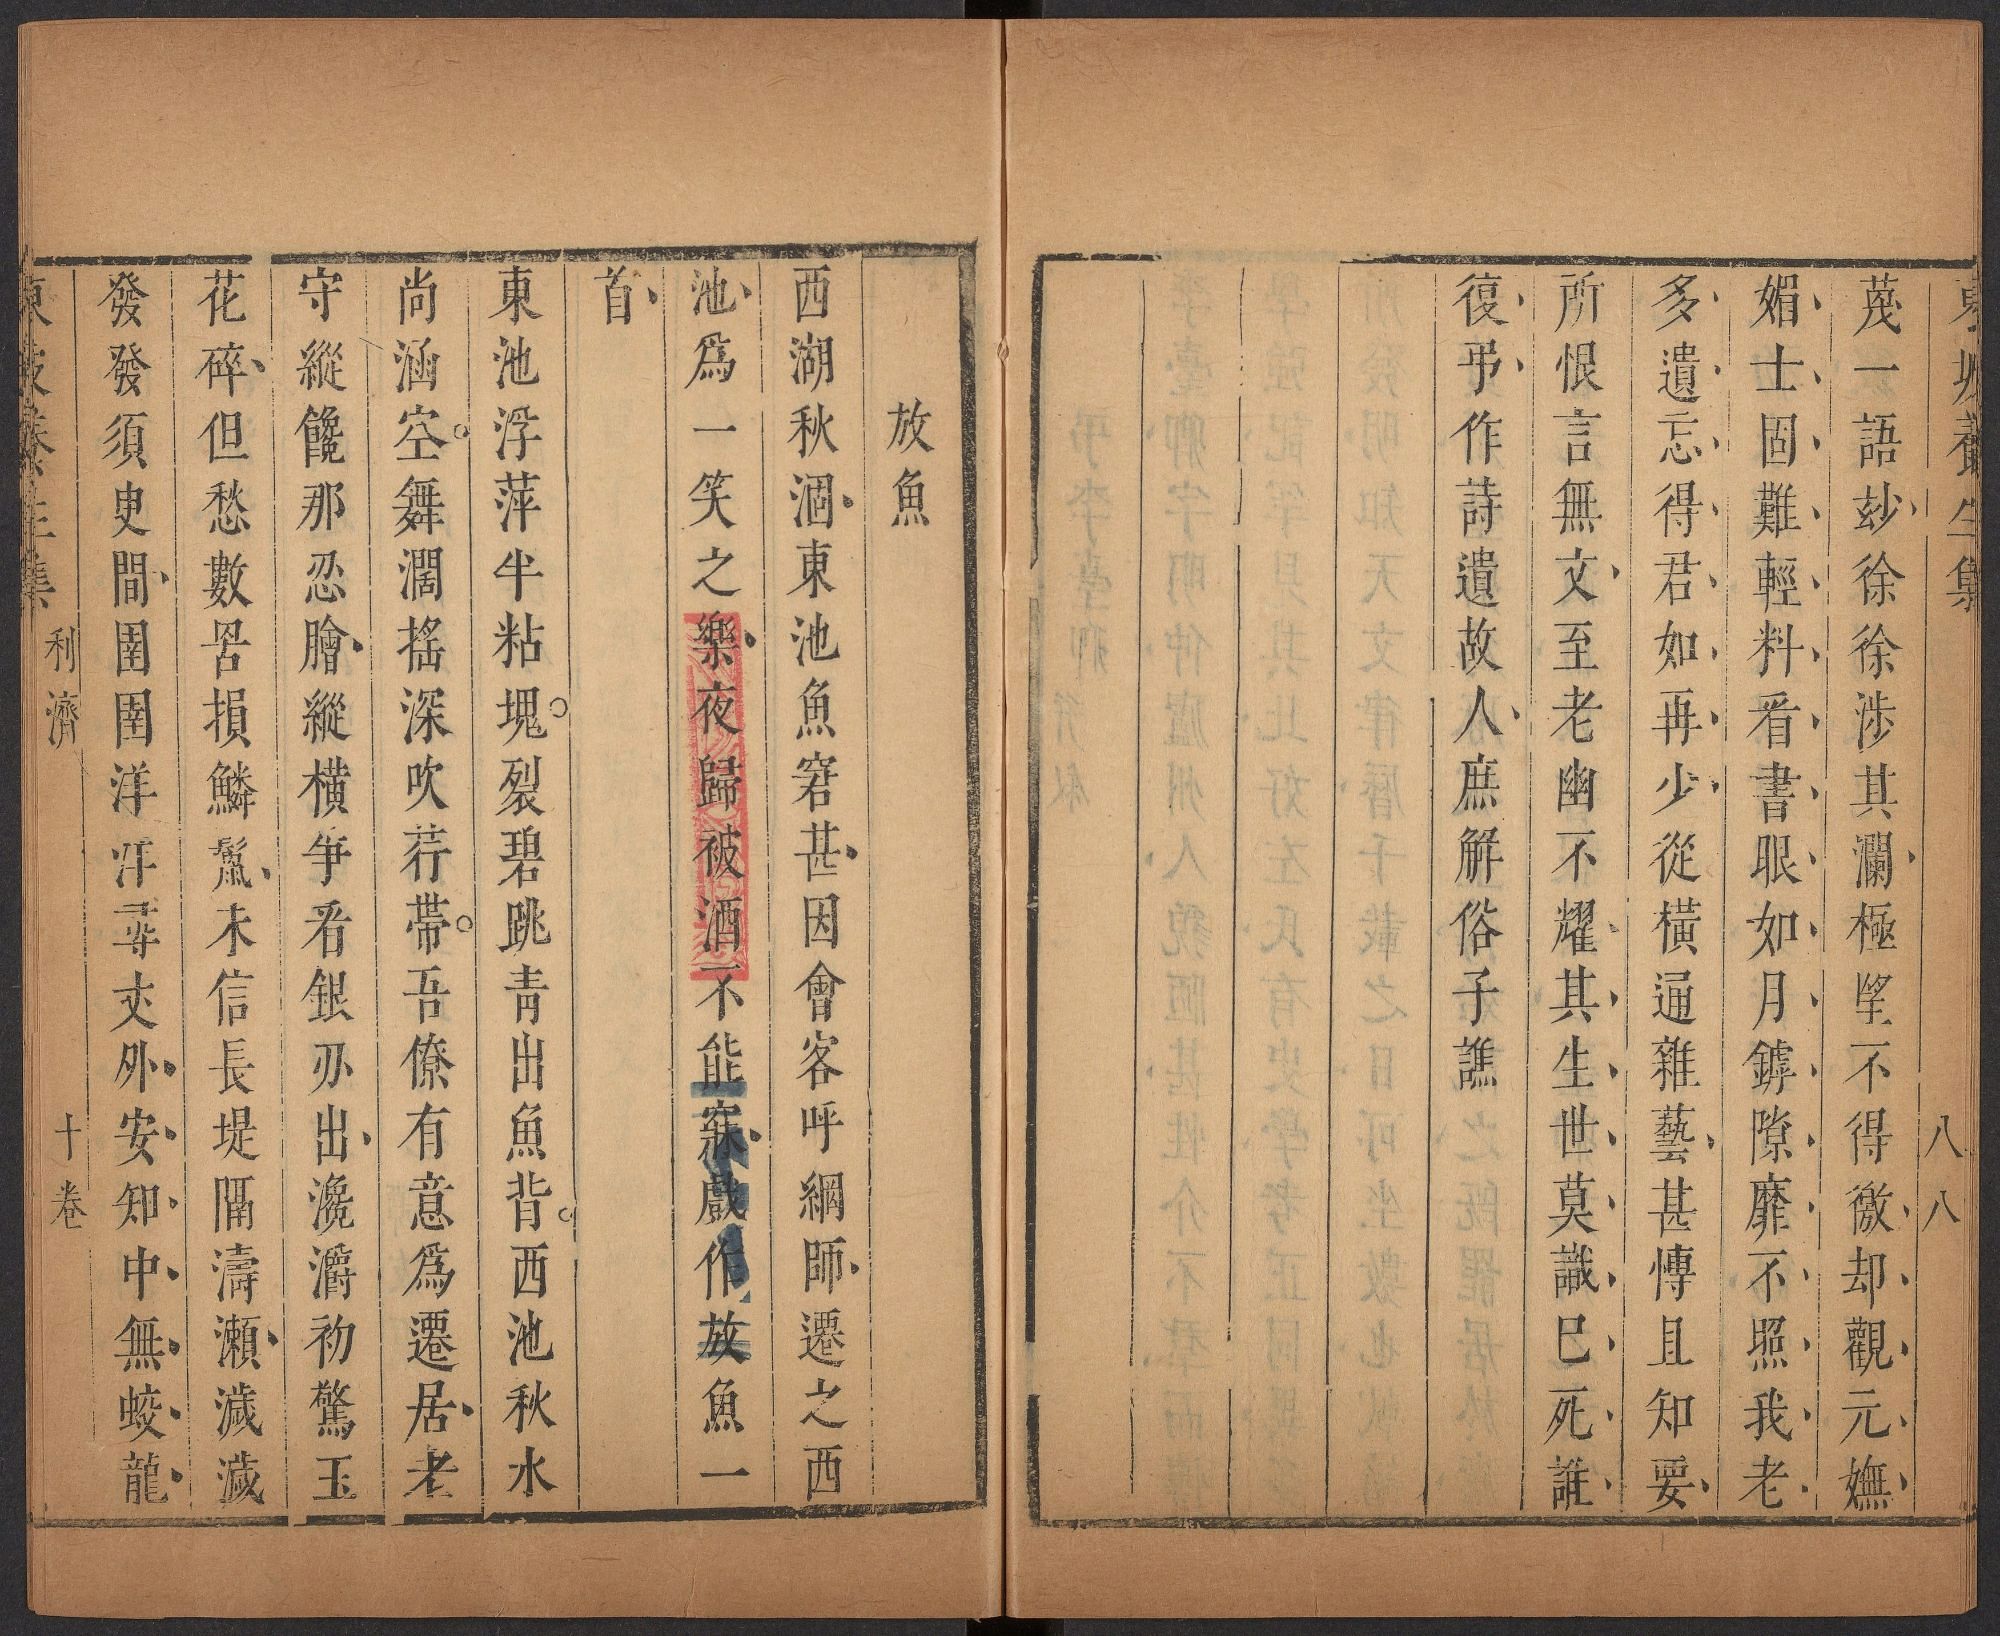 東坡養生集
八八
茂一語玅徐徐涉其瀾極望不得徼却觀元嫵
媚士固難輕料看書眼如月罅隙靡不照我老
多遺忘得君如再少從橫通雜藝甚愽且知要
所恨言無文至老幽不耀其生世莫識巳死誰
復弔作詩遺故人庶解俗子譙
放魚
西湖秋涸東池魚窘甚因會客呼網師遷之西
池為一笑之樂夜歸被酒不能寐戲作放魚一
首
東池浮萍半粘塊裂碧跳青出魚背西池秋水
尚涵空舞濶搖深吹荇帶吾僚有意為遷居老
守縱饞那忍膾縱橫爭看銀刅出瀺灂初驚玉
花碎但愁數罟損鱗鬣未信長堤隔濤瀨濊濊
發發須㬰間圉圉洋洋尋丈外安知中無蛟龍
東坡養生集
利濟
十卷